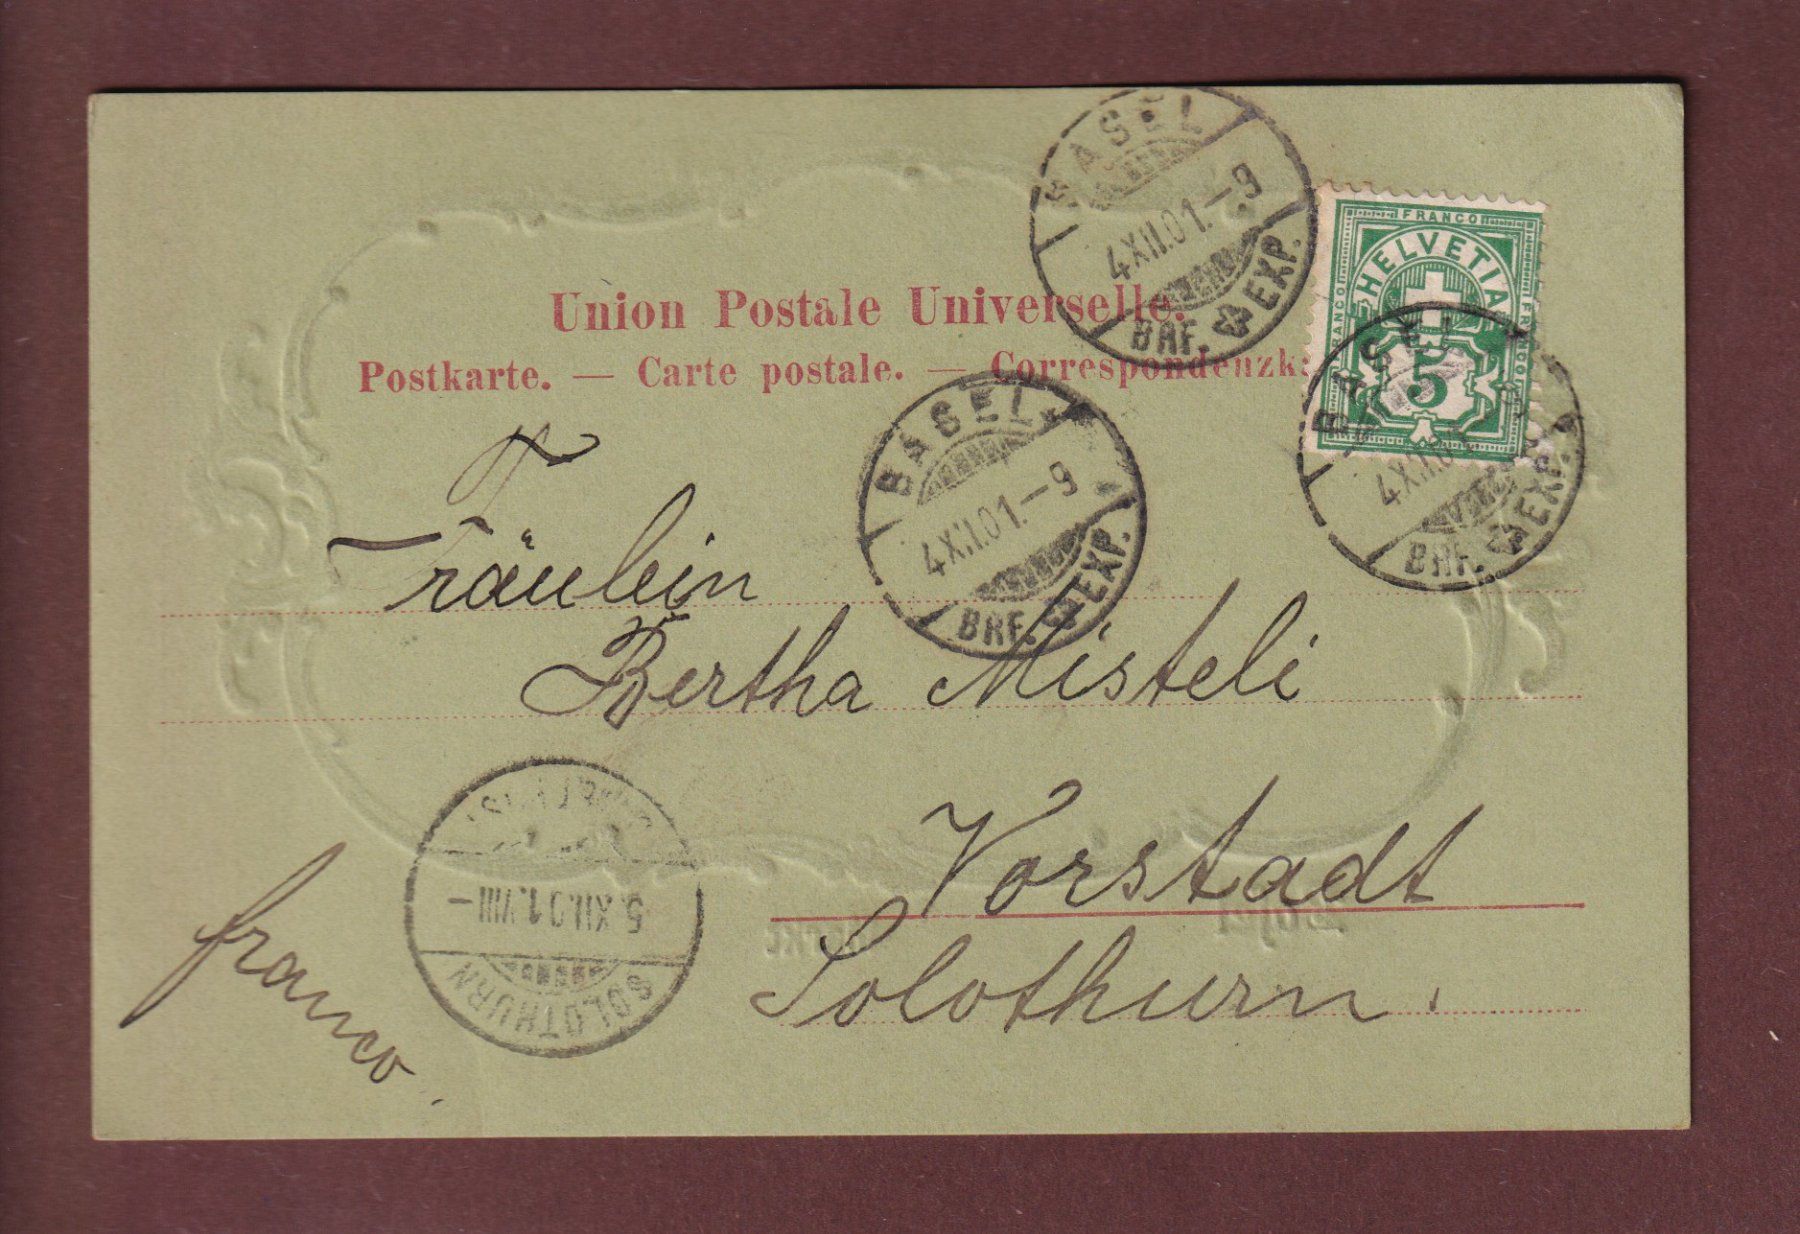 BASEL
4.XII.01.–9
BRF. EXP.
FRANCO
HELVETIA
FRANCO
FRANCO
5
BASEL
4.XII.01.–9
BRF. EXP.
Union Postale Universelle.
Postkarte. — Carte postale. — Correspondenzk
BASEL
4.XII.01.–9
BRF. EXP.
Fräulein
Bertha Misteli
Vorstadt
Solothurn.
franco.
SOLOTHURN
5.XII.01.VIII–